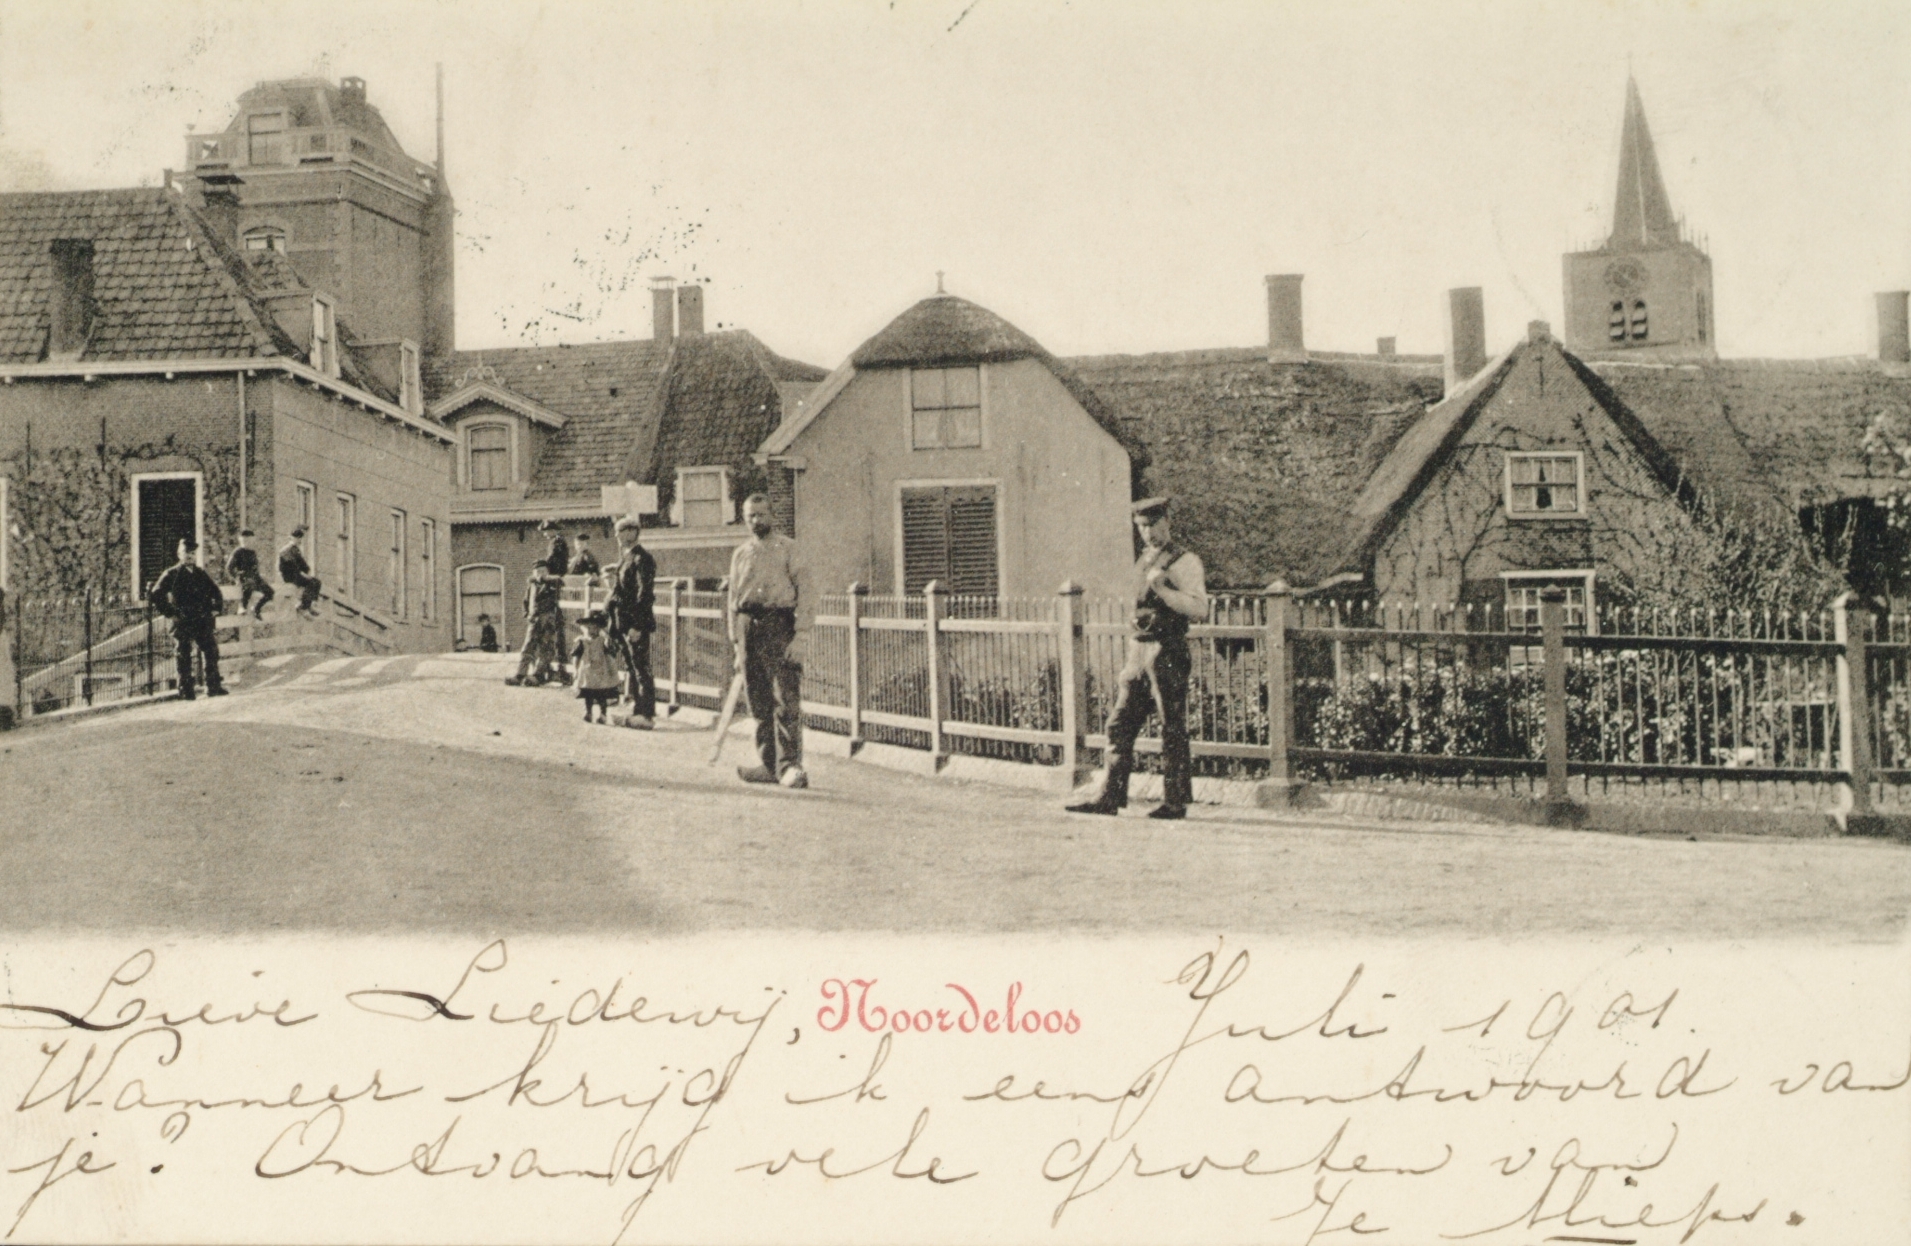 Lieve Liedewij, Noordeloos Juli 1901.
Wanneer krijg ik eens antwoord van
je? Ontvang vele groeten van
Je Mieps.